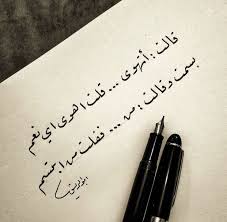 قالت : أتهوى ... قلت اهوى اي نعم
بسمت وقالت : من ... فقلت من ابتسم